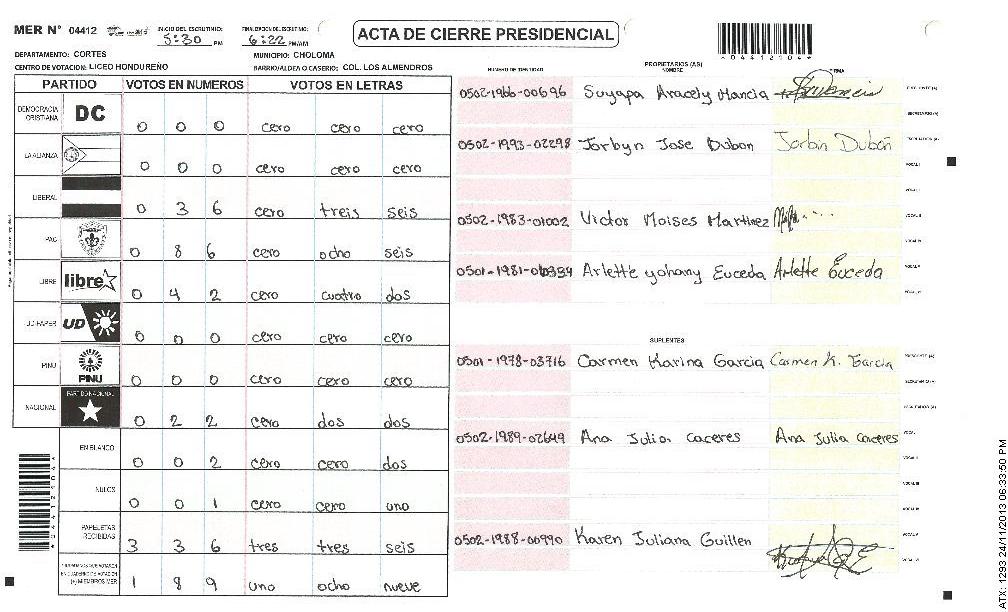 MER N° 04412
INICIO DEL ESCRUTINIO: 5:30 PM
FINALIZACION DEL ESCRUTINIO: 6:22 PM/AM
ACTA DE CIERRE PRESIDENCIAL
*04412104*
DEPARTAMENTO: CORTES
MUNICIPIO: CHOLOMA
CENTRO DE VOTACION: LICEO HONDUREÑO
BARRIO/ALDEA O CASERIO: COL. LOS ALMENDROS
PARTIDO VOTOS EN NUMEROS VOTOS EN LETRAS
DEMOCRACIA CRISTIANA DC 0 0 0 cero cero cero
LA ALIANZA 0 0 0 cero cero cero
LIBERAL 0 3 6 cero treis seis
PAC 0 8 6 cero ocho seis
LIBRE libre 0 4 2 cero cuatro dos
UD-FAPER UD 0 0 0 cero cero cero
PINU PINU 0 0 0 cero cero cero
NACIONAL PARTIDO NACIONAL 0 2 2 cero dos dos
EN BLANCO 0 0 2 cero cero dos
NULOS 0 0 1 cero cero uno
PAPELETAS RECIBIDAS 3 3 6 tres tres seis
(+) MIEMBROS MER 1 8 9 uno ocho nueve
NUMERO DE IDENTIDAD PROPIETARIOS (AS) NOMBRE FIRMA
0502-1966-00696 Suyapa Aracely Mancia
0502-1993-02298 Jorbyn Jose Dubon Jorbin Dubón
0502-1983-01002 Victor Moises Martinez
Arlette yohany Euceda Arlette Euceda
SUPLENTES
0501-1978-03716 Carmen Karina Garcia Carmen K. Garcia
0502-1989-02649 Ana Julia caceres Ana Julia caceres
0502-1988-00990 Karen Juliana Guillen
ATX: 1293 24/11/2013 06:33:50 PM